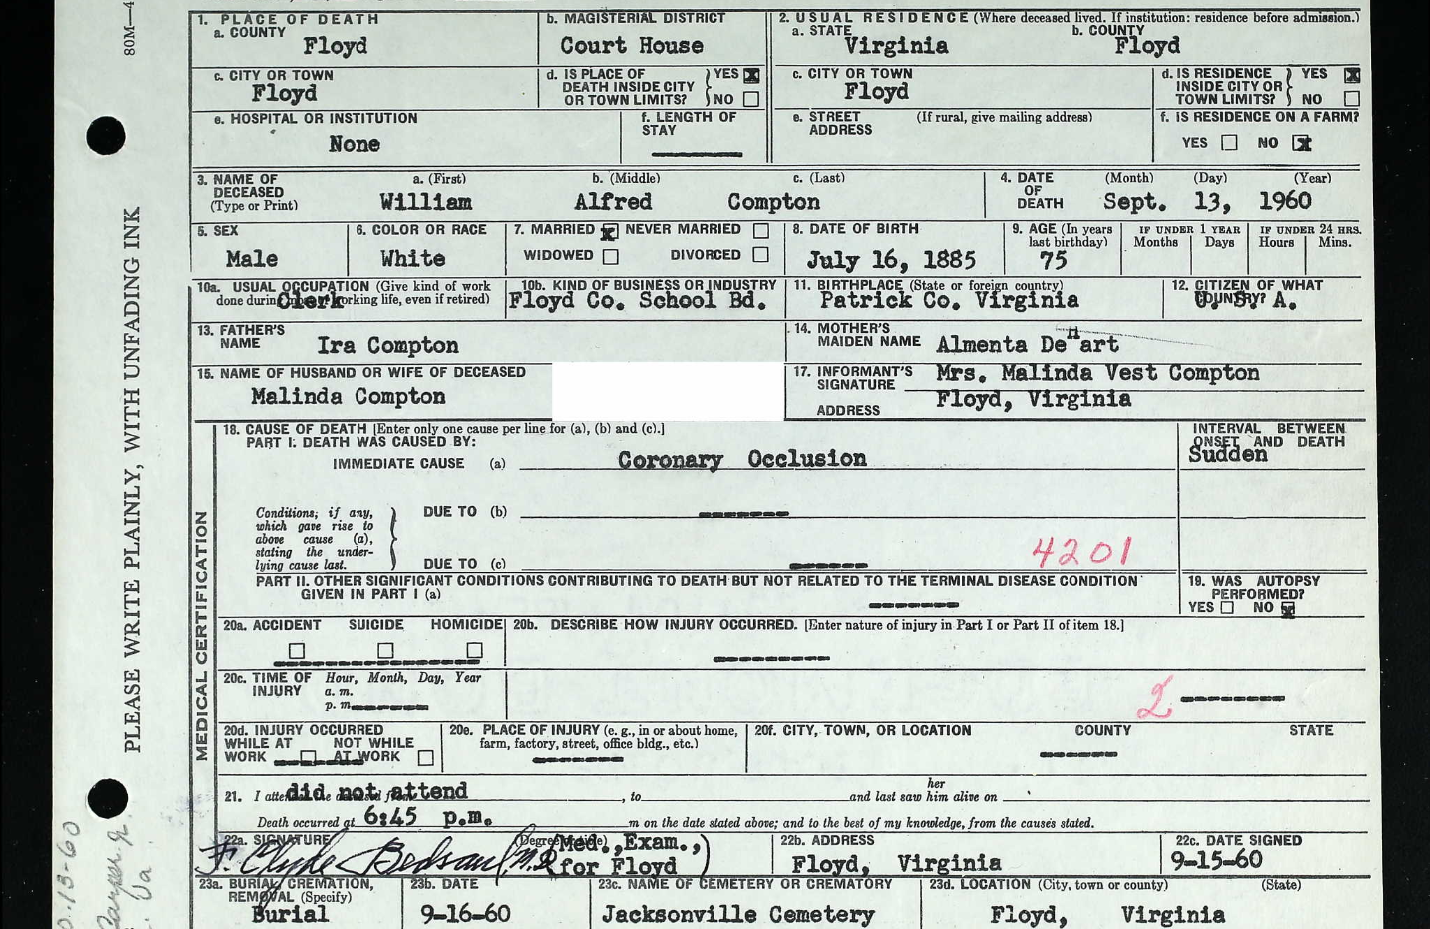 80M—4
PLEASE WRITE PLAINLY, WITH UNFADING INK
1. PLACE OF DEATH
a. COUNTY
Floyd
b. MAGISTERIAL DISTRICT
Court House
2. USUAL RESIDENCE (Where deceased lived. If institution: residence before admission.)
a. STATE b. COUNTY
Virginia Floyd
c. CITY OR TOWN
Floyd
d. IS PLACE OF DEATH INSIDE CITY OR TOWN LIMITS? YES NO
c. CITY OR TOWN
Floyd
d. IS RESIDENCE INSIDE CITY OR TOWN LIMITS? YES NO
e. HOSPITAL OR INSTITUTION
None
f. LENGTH OF STAY
e. STREET ADDRESS (If rural, give mailing address)
f. IS RESIDENCE ON A FARM?
YES NO
3. NAME OF DECEASED (Type or Print)
a. (First) b. (Middle) c. (Last)
William Alfred Compton
4. DATE OF DEATH (Month) (Day) (Year)
Sept. 13, 1960
5. SEX
Male
6. COLOR OR RACE
White
7. MARRIED NEVER MARRIED
WIDOWED DIVORCED
8. DATE OF BIRTH
July 16, 1885
9. AGE (In years last birthday)
75
IF UNDER 1 YEAR
Months Days
IF UNDER 24 HRS.
Hours Mins.
10a. USUAL OCCUPATION (Give kind of work
done during working life, even if retired)
Clerk
10b. KIND OF BUSINESS OR INDUSTRY
Floyd Co. School Bd.
11. BIRTHPLACE (State or foreign country)
Patrick Co. Virginia
12. CITIZEN OF WHAT COUNTRY?
U. S. A.
13. FATHER'S NAME
Ira Compton
14. MOTHER'S MAIDEN NAME
Almenta DeHart
15. NAME OF HUSBAND OR WIFE OF DECEASED
Malinda Compton
17. INFORMANT'S SIGNATURE
Mrs. Malinda Vest Compton
ADDRESS
Floyd, Virginia
MEDICAL CERTIFICATION
18. CAUSE OF DEATH [Enter only one cause per line for (a), (b) and (c).]
PART I. DEATH WAS CAUSED BY:
INTERVAL BETWEEN ONSET AND DEATH
IMMEDIATE CAUSE (a) Coronary Occlusion
Sudden
Conditions, if any, which gave rise to above cause (a), stating the underlying cause last.
DUE TO (b)
DUE TO (c)
4201
PART II. OTHER SIGNIFICANT CONDITIONS CONTRIBUTING TO DEATH BUT NOT RELATED TO THE TERMINAL DISEASE CONDITION
GIVEN IN PART I (a)
19. WAS AUTOPSY PERFORMED?
YES NO
20a. ACCIDENT SUICIDE HOMICIDE
20b. DESCRIBE HOW INJURY OCCURRED. [Enter nature of injury in Part I or Part II of item 18.]
20c. TIME OF INJURY Hour, Month, Day, Year
a. m.
p. m.
2
20d. INJURY OCCURRED
WHILE AT WORK NOT WHILE AT WORK
20e. PLACE OF INJURY (e. g., in or about home,
farm, factory, street, office bldg., etc.)
20f. CITY, TOWN, OR LOCATION COUNTY STATE
21. I did not attend , to and last saw her him alive on
Death occurred at 6:45 p.m. m on the date stated above; and to the best of my knowledge, from the causes stated.
22a. SIGNATURE (Degree or title)
F. Clyde Bedsaul M.D. (Med., Exam.,
for Floyd)
22b. ADDRESS
Floyd, Virginia
22c. DATE SIGNED
9-15-60
23a. BURIAL, CREMATION, REMOVAL (Specify)
Burial
23b. DATE
9-16-60
23c. NAME OF CEMETERY OR CREMATORY
Jacksonville Cemetery
23d. LOCATION (City, town or county) (State)
Floyd, Virginia